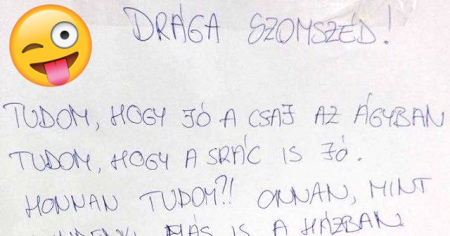 DRÁGA SZOMSZÉD!
TUDOM, HOGY JÓ A CSAJ AZ ÁGYBAN
TUDOM, HOGY A SRÁC IS JÓ.
HONNAN TUDOM?! ONNAN, MINT
MÁS IS A HÁZBAN